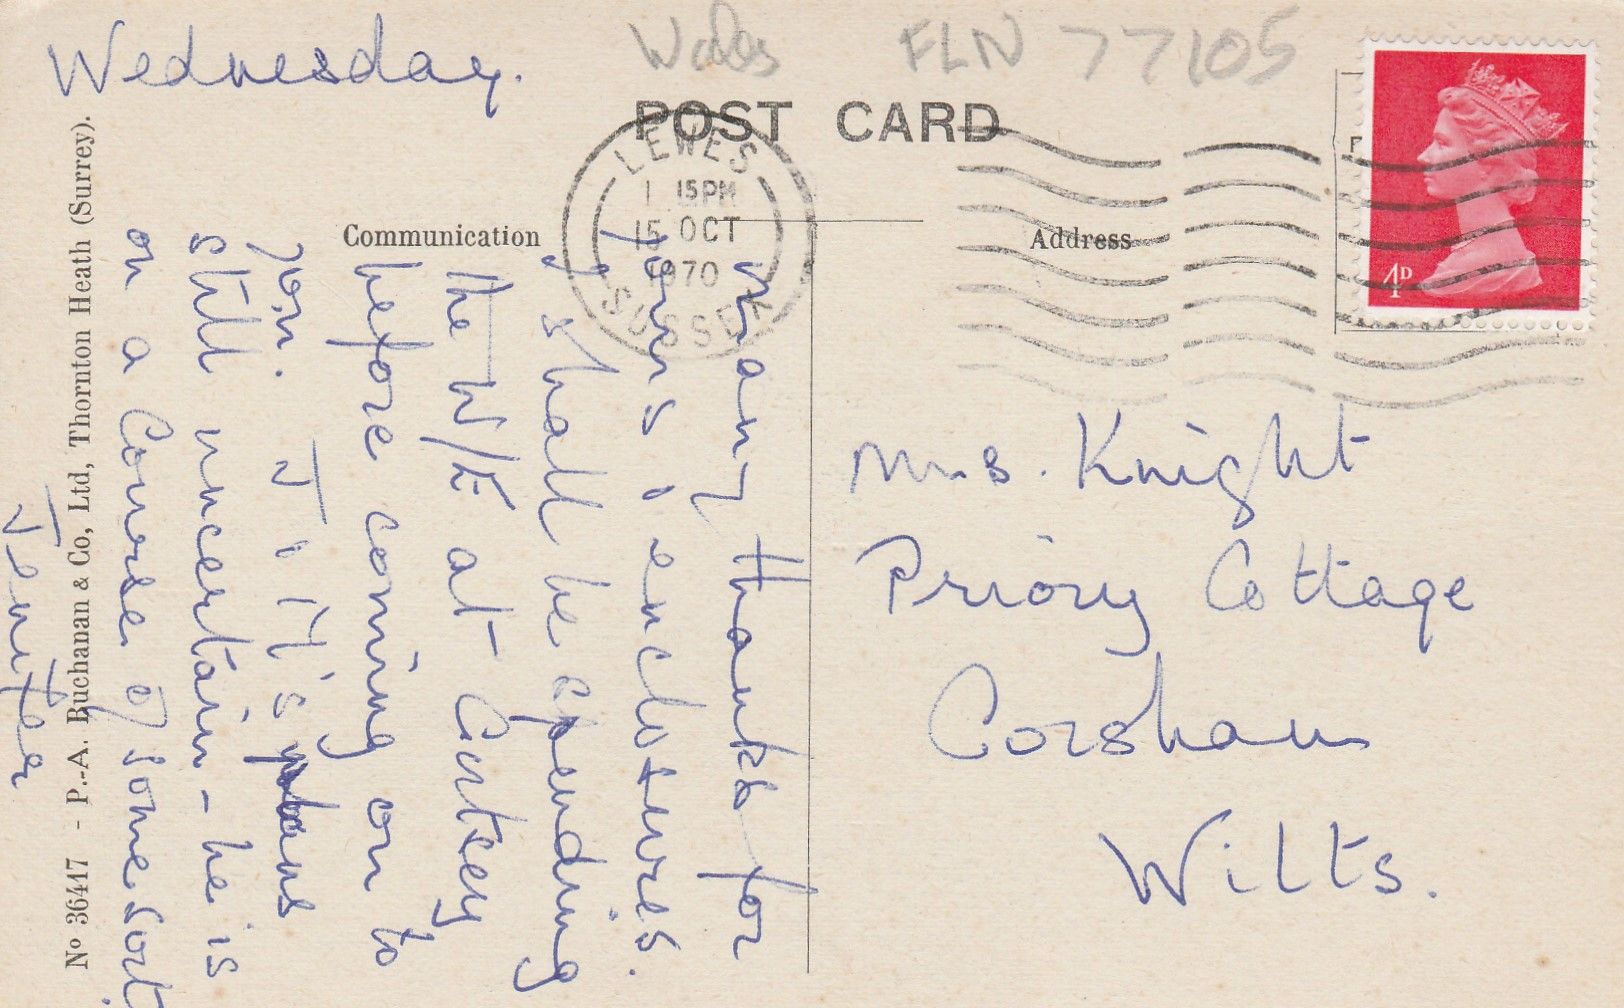 Wednesday.
FLN 77105
POST CARD
LEWES
1 15PM
15 OCT
1970
SUSSEX
4D
Communication
Address
Many thanks for
yours & enclosures.
I shall be spending
the W/E at
before coming on to
you. J.M's plans
still uncertain - he is
on a Course of some sort.
Jennifer
Mrs. Knight
Priory Cottage
Corsham
Wilts.
No 36417 - P.-A. Buchanan & Co, Ltd, Thornton Heath (Surrey).